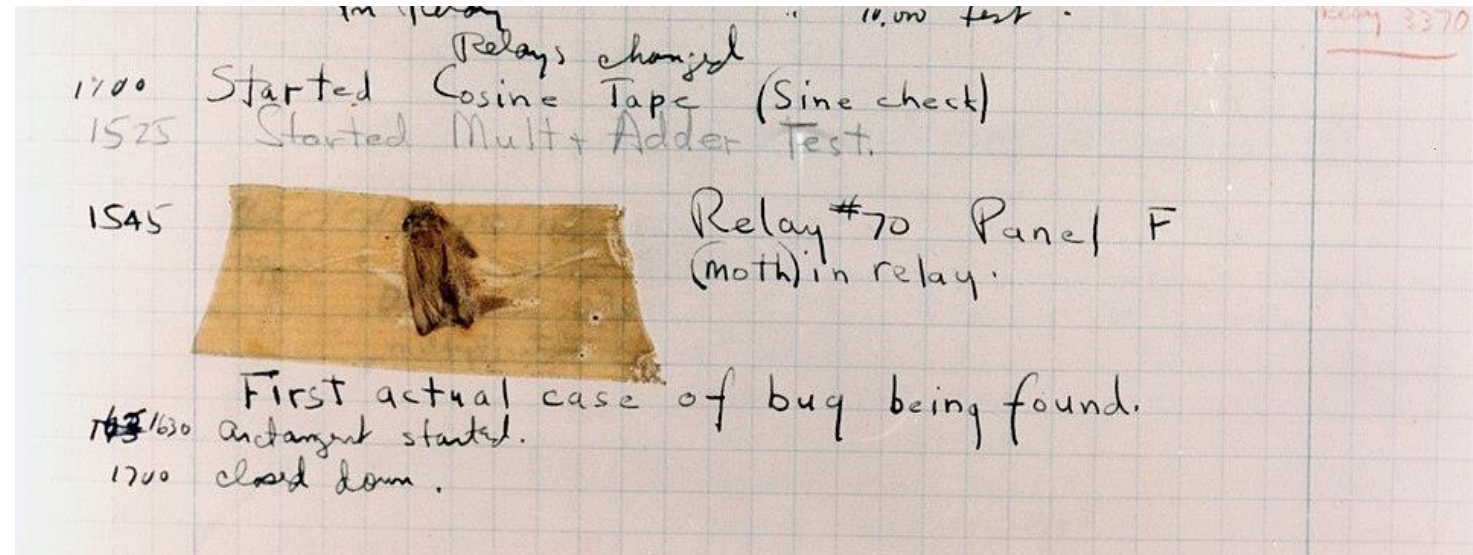 in relay " 10,000 test .
Relay 3370
Relays changed
1700 Started Cosine Tape (Sine check)
1525 Started Mult + Adder Test.
1545 Relay #70 Panel F
(moth) in relay.
First actual case of bug being found.
1630 arctangent started.
1700 closed down.